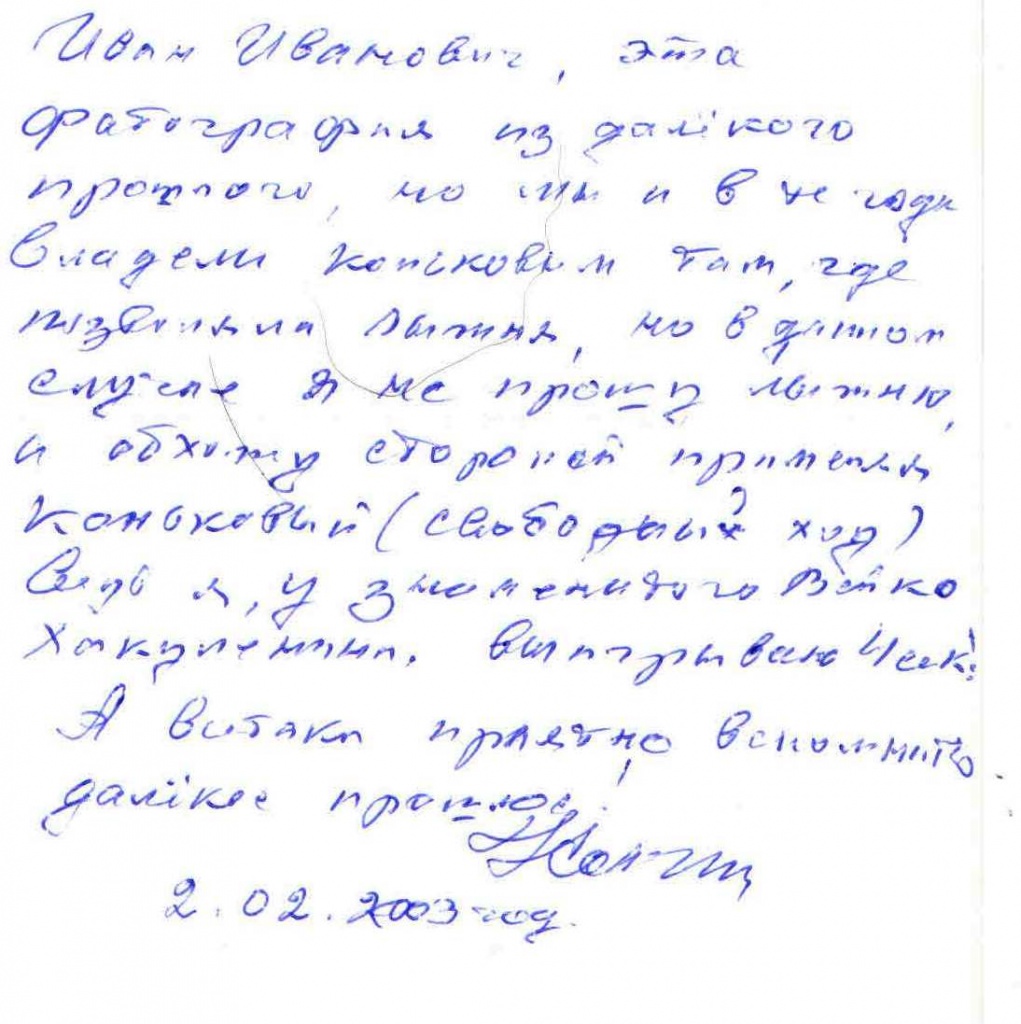 Иван Иванович, эта
фатография из далёкого
прошлого, но мы и в те годы
владели коньковым там, где
позволяла лыжня, но в данном
случае я не прошу лыжню,
а обхожу стороной применяя
Коньковый (свободный ход)
Ведь я, у знаменитого Вейко
Хакуленина. выигрываю
А витаки приятно вспомнить
далёкое прошлое!
2.02.2003 год.